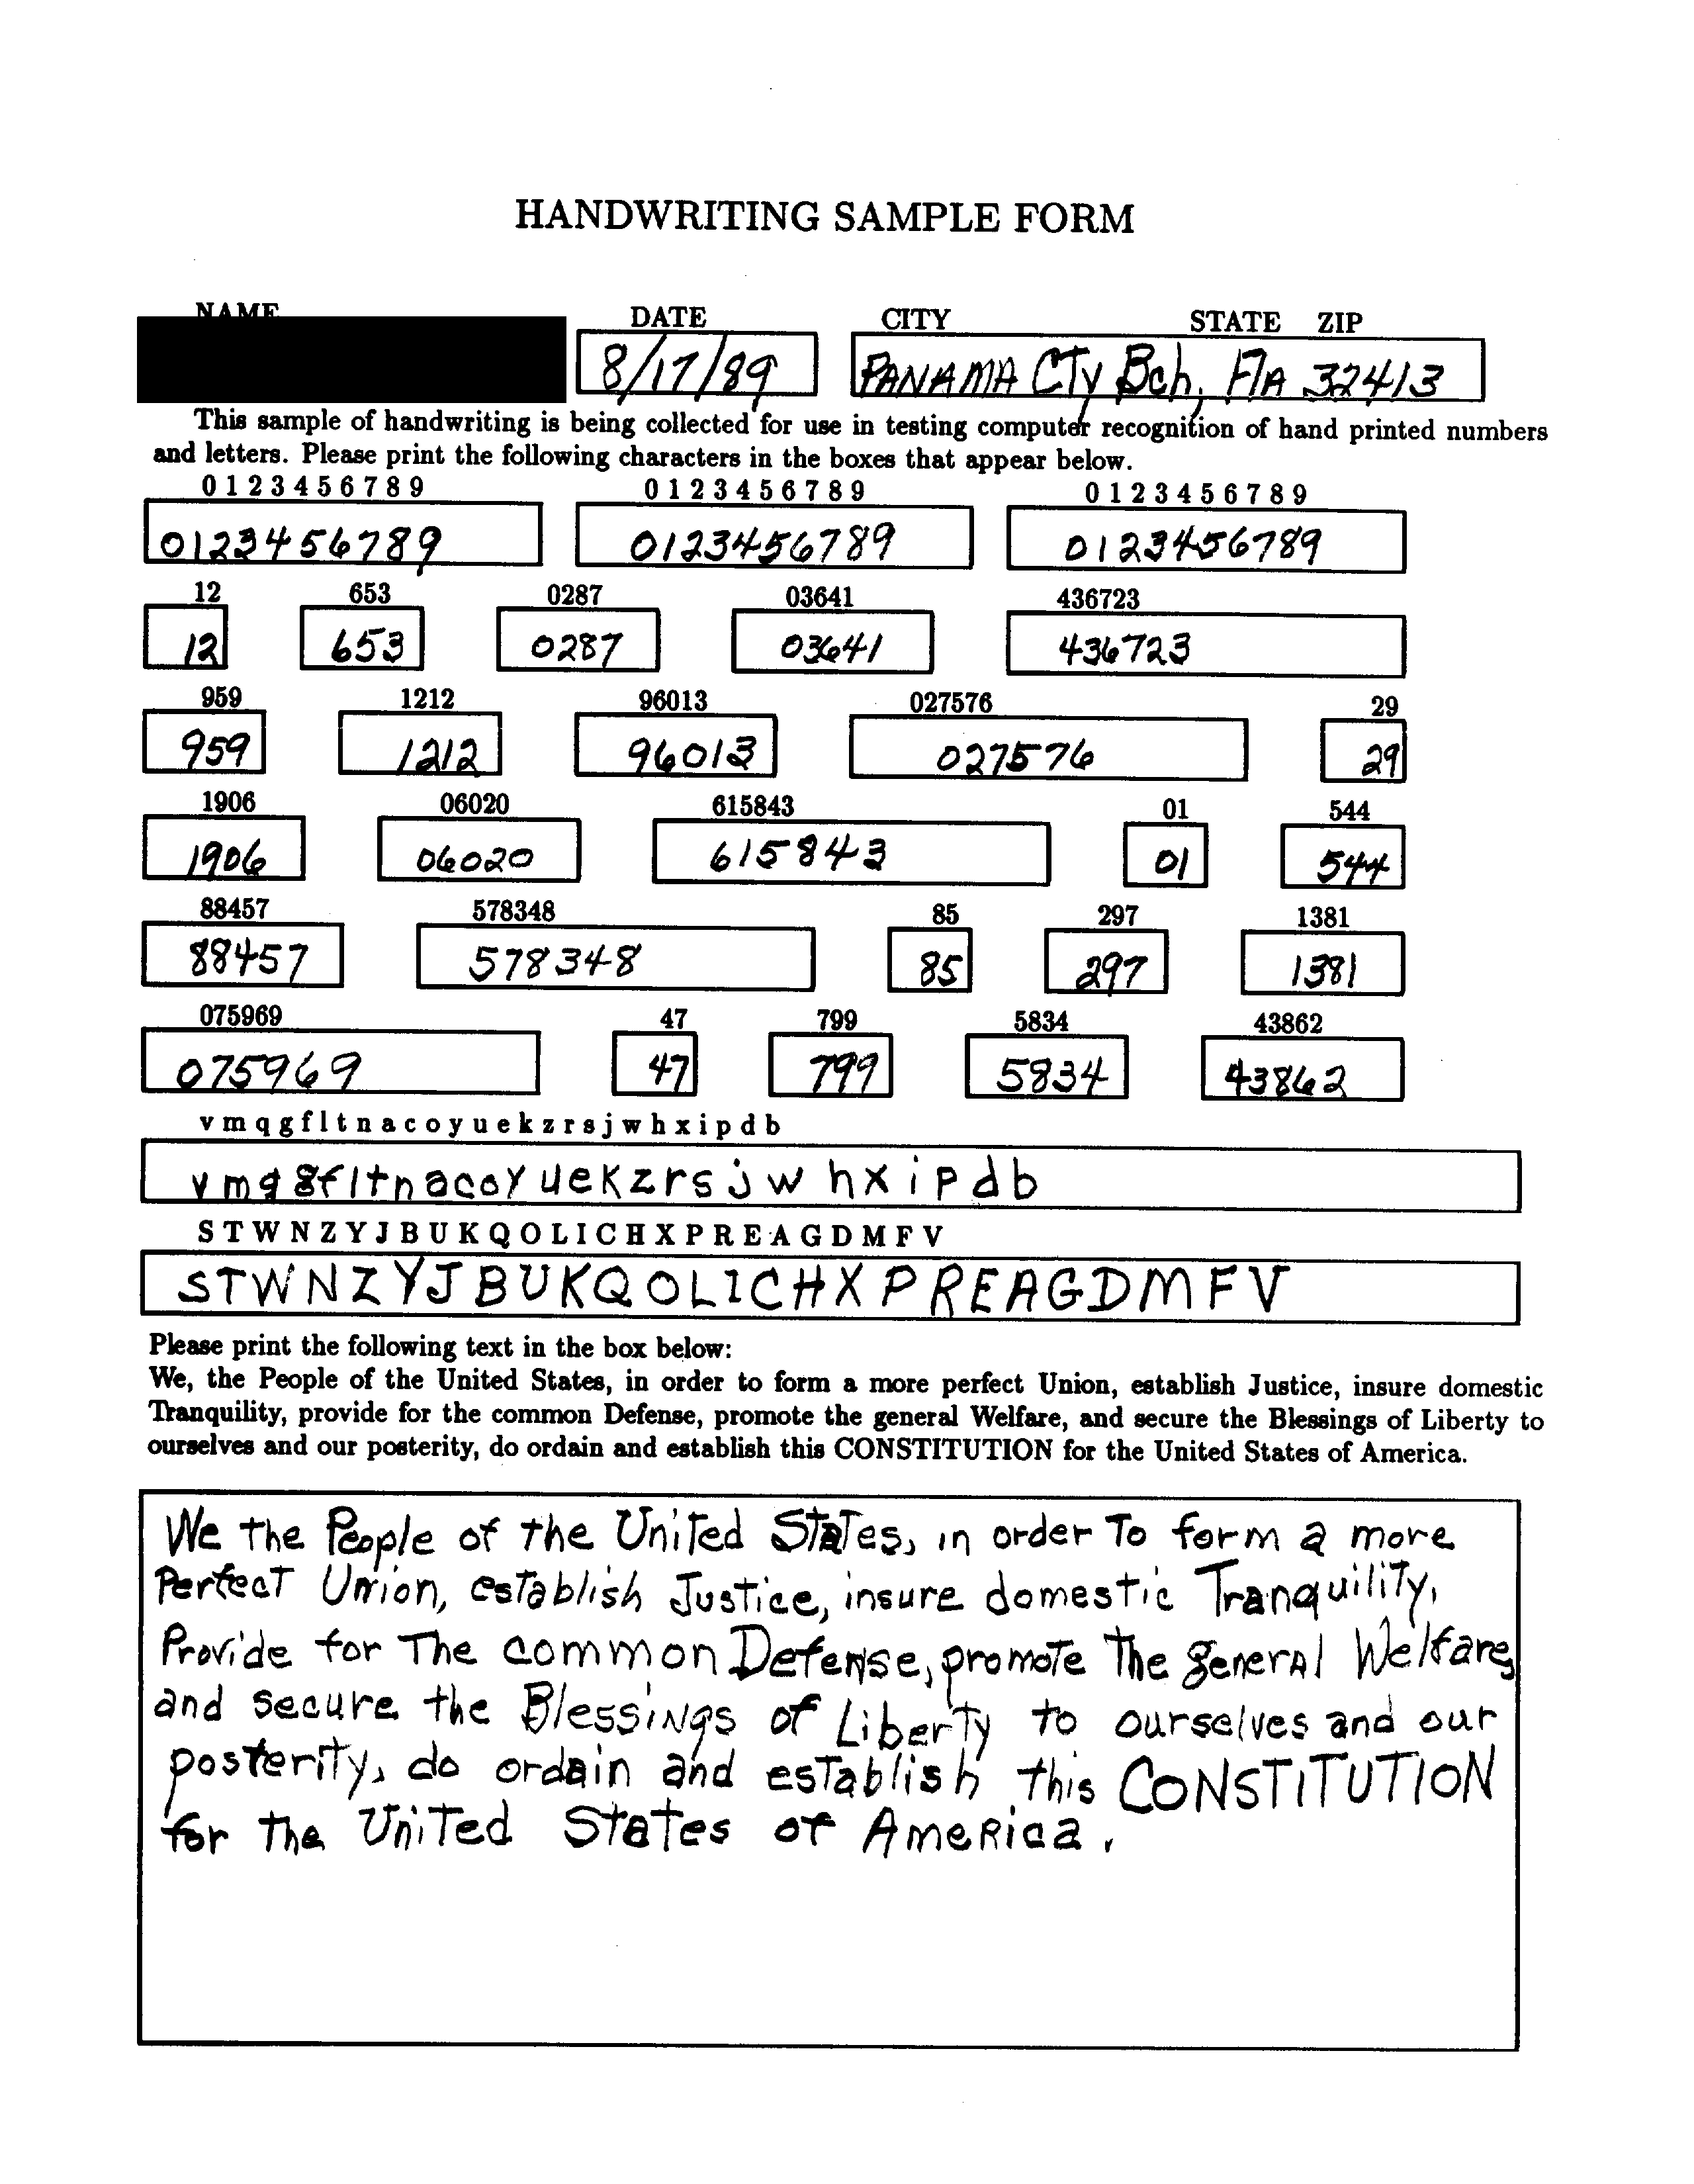 HANDWRITING SAMPLE FORM
NAME DATE CITY STATE ZIP
8/17/89 PANAMA CTy Bch, FlA 32413
This sample of handwriting is being collected for use in testing computer recognition of hand printed numbers
and letters. Please print the following characters in the boxes that appear below.
0 1 2 3 4 5 6 7 8 9 0 1 2 3 4 5 6 7 8 9 0 1 2 3 4 5 6 7 8 9
0123456789 0123456789 0123456789
12 653 0287 03641 436723
12 653 0287 03641 436723
959 1212 96013 027576 29
959 1212 96013 027576 29
1906 06020 615843 01 544
1906 06020 615843 01 544
88457 578348 85 297 1381
88457 578348 85 297 1381
075969 47 799 5834 43862
075969 47 799 5834 43862
v m q g f l t n a c o y u e k z r s j w h x i p d b
v m q g f l t n a c o y u e k z r s j w h x i p d b
S T W N Z Y J B U K Q O L I C H X P R E A G D M F V
S T W N Z Y J B U K Q O L I C H X P R E A G D M F V
Please print the following text in the box below:
We, the People of the United States, in order to form a more perfect Union, establish Justice, insure domestic
Tranquility, provide for the common Defense, promote the general Welfare, and secure the Blessings of Liberty to
ourselves and our posterity, do ordain and establish this CONSTITUTION for the United States of America.
We the People of the United States, in order To form a more
Perfect Union, establish Justice, insure domestic Tranquility,
Provide for The common Defense, promote The general Welfare,
and secure the Blessings of Liberty to ourselves and our
posterity, do ordain and establish this CONSTITUTION
for the United States of America.